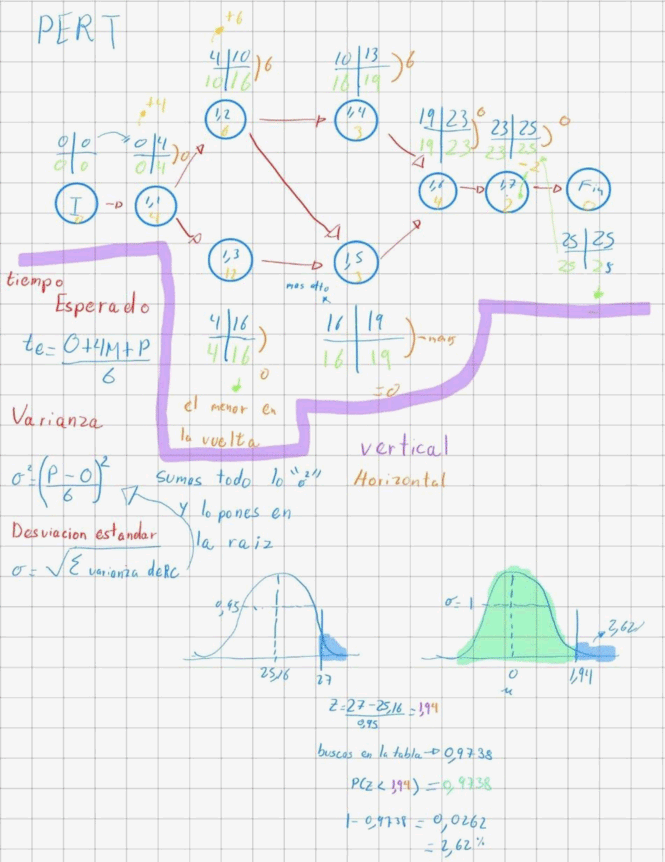 PERT
+6
4 | 10 ) 6
10 | 16
10 | 13 ) 6
16 | 19
+4
0 | 0
0 | 0
0 | 4 ) 0
0 | 4
1,2
6
1,4
3
19 | 23 ) 0
19 | 23
23 | 25 ) 0
23 | 25
-2
I
0
1,1
4
1,6
4
1,7
2
Fin
0
1,3
12
1,5
3
mas alto
25 | 25
25 | 25
tiempo
Esperado
te = O+4M+P
6
4 | 16 ) 0
4 | 16
16 | 19
16 | 19
= 0
el menor en
la vuelta
Varianza
σ² = (P - O)²
6
vertical
Horizontal
sumas todo lo "σ²"
y lo pones en
la raiz
Desviacion estandar
σ = √Σ varianza de RC
0,95
25,16
27
σ = 1
2,62%
0
1,94
Z = 27 - 25,16 = 1,94
0,95
buscas en la tabla → 0,9738
P(Z < 1,94) = 0,9738
1 - 0,9738 = 0,0262
= 2,62%